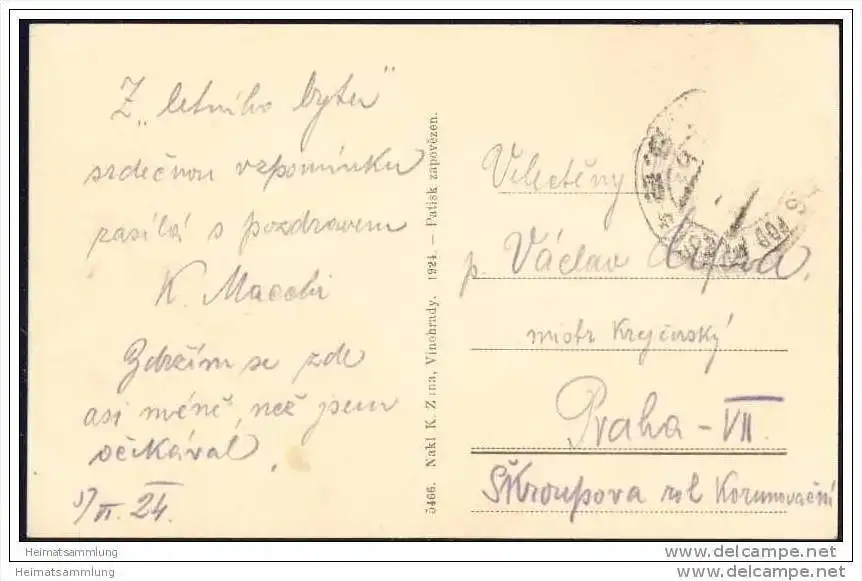 Z „letního bytu"
srdečnou vzpomínku
zasílá s pozdravem
K. Macchi
Zdržím se zde
asi méně, než jsem
očekával.
24.
5466. Nakl K. Zuna, Vinohrady. 1924. — Patisk zapovězen.
p. Václav
mistr Krejčovský
Praha - VII.
Škroupova roh Korunovační
Heimatsammlung
Heimatsammlung
www.delcampe.net
www.delcampe.net